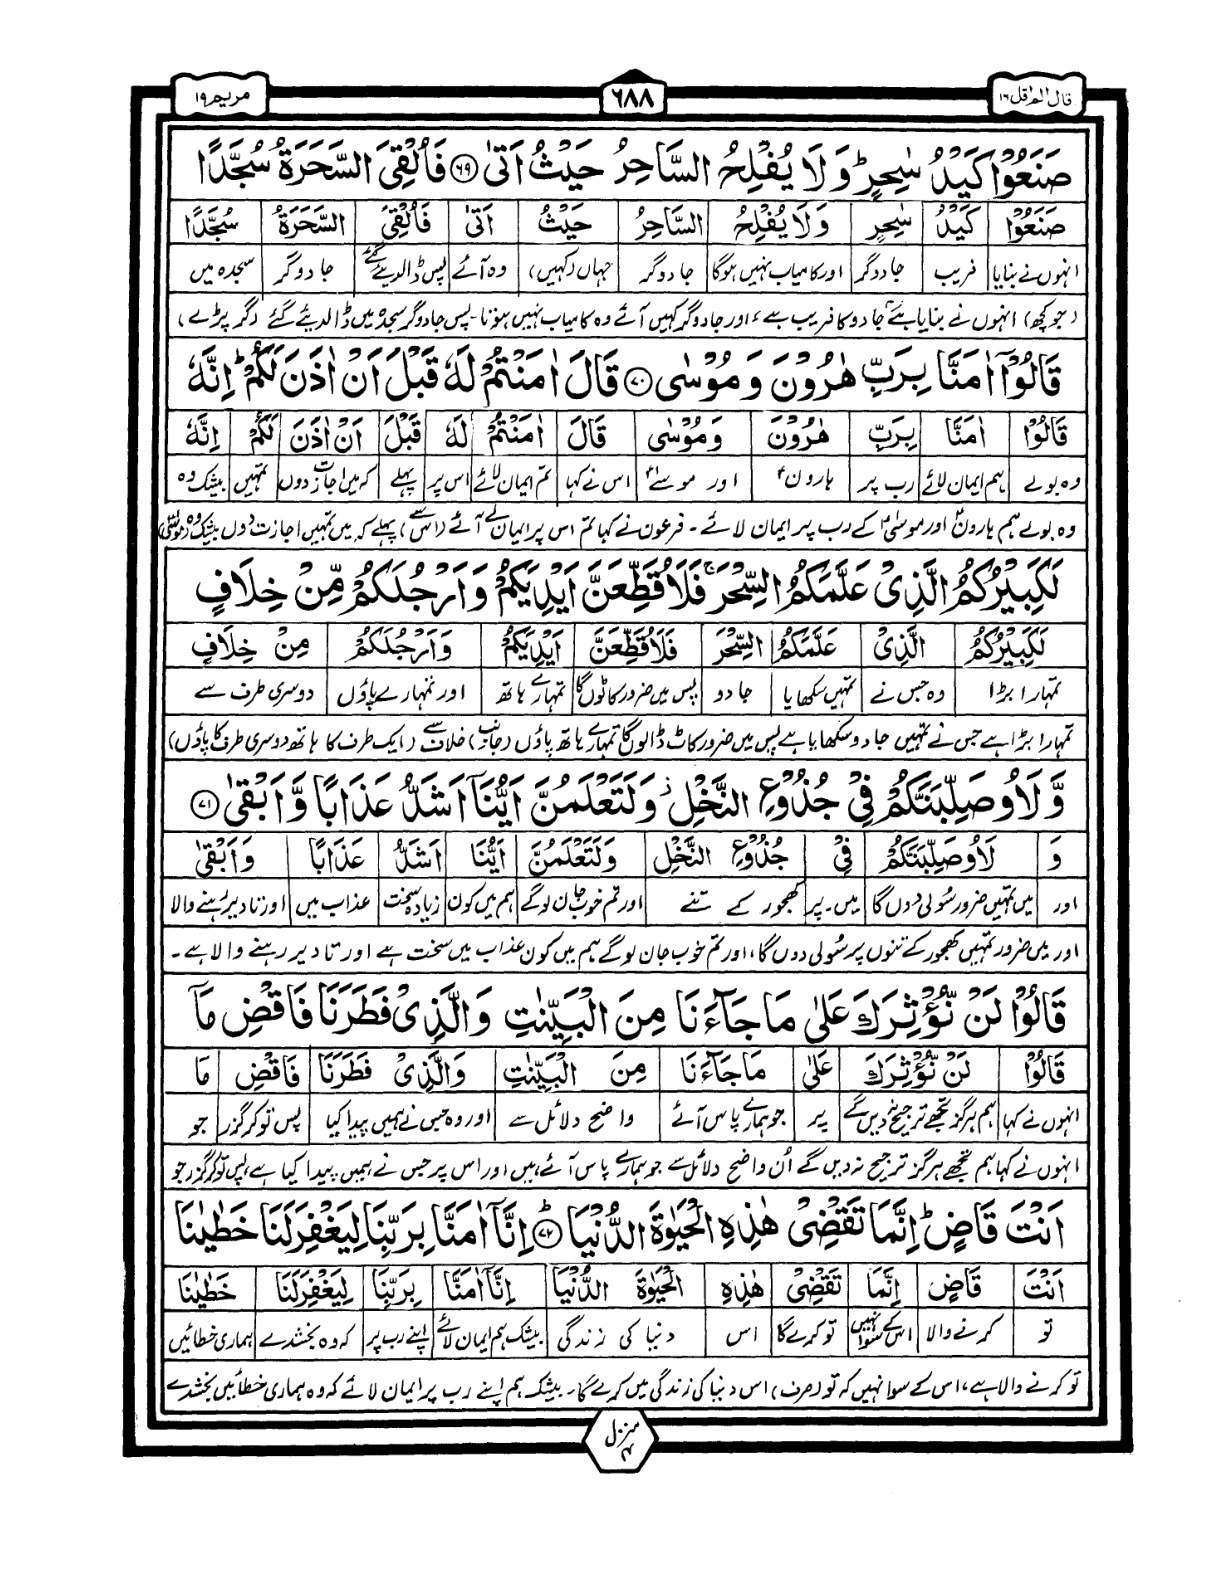 قال الم اقل ١٦
٦٨٨
مریم ١٩
صَنَعُوْا كَيْدُ سٰحِرٍ ؕ وَلَا يُفْلِحُ السَّاحِرُ حَيْثُ اَتٰى ﴿٦٩﴾ فَاُلْقِىَ السَّحَرَةُ سُجَّدًا
صَنَعُوْا | كَيْدُ | سٰحِرٍ | وَلَا يُفْلِحُ | السَّاحِرُ | حَيْثُ | اَتٰى | فَاُلْقِىَ | السَّحَرَةُ | سُجَّدًا
انہوں نے بنایا | فریب | جادوگر | اور کامیاب نہیں ہوگا | جادوگر | جہاں (کہیں) | وہ آئے | پس ڈالدیئے گئے | جادوگر | سجدہ میں
(جو کچھ) انہوں نے بنایا ہے جادو کا فریب ہے، اور جادوگر کہیں آئے وہ کامیاب نہیں ہوتا۔ پس جادوگر سجدہ میں ڈالدیئے گئے (گر پڑے)
قَالُوْۤا اٰمَنَّا بِرَبِّ هٰرُوْنَ وَمُوْسٰى ﴿٧٠﴾ قَالَ اٰمَنْتُمْ لَهٗ قَبْلَ اَنْ اٰذَنَ لَكُمْ ؕ اِنَّهٗ
قَالُوْا | اٰمَنَّا | بِرَبِّ | هٰرُوْنَ | وَمُوْسٰى | قَالَ | اٰمَنْتُمْ | لَهٗ | قَبْلَ | اَنْ اٰذَنَ | لَكُمْ | اِنَّهٗ
وہ بولے | ہم ایمان لائے | رب پر | ہارونؑ | اور موسےٰؑ | اس نے کہا | تم ایمان لائے | اس پر | پہلے | کہ میں اجازت دوں | تمہیں | بیشک وہ
وہ بولے ہم ہارونؑ اور موسیٰؑ کے رب پر ایمان لائے۔ فرعون نے کہا تم اس پر ایمان لے آئے (اس سے) پہلے کہ میں تمہیں اجازت دوں بیشک وہ (موسیٰؑ)
لَكَبِيْرُكُمُ الَّذِىْ عَلَّمَكُمُ السِّحْرَ ۚ فَلَاُقَطِّعَنَّ اَيْدِيَكُمْ وَاَرْجُلَكُمْ مِّنْ خِلَافٍ
لَكَبِيْرُكُمُ | الَّذِىْ | عَلَّمَكُمُ | السِّحْرَ | فَلَاُقَطِّعَنَّ | اَيْدِيَكُمْ | وَاَرْجُلَكُمْ | مِنْ خِلَافٍ
تمہارا بڑا | وہ جس نے | تمہیں سکھایا | جادو | پس میں ضرور کاٹوں گا | تمہارے ہاتھ | اور تمہارے پاؤں | دوسری طرف سے
تمہارا بڑا ہے جس نے تمہیں جادو سکھایا ہے پس میں ضرور کاٹ ڈالوں گا تمہارے ہاتھ پاؤں (جانب) خلاف سے (ایک طرف کا ہاتھ دوسری طرف کا پاؤں)
وَّلَاُوصَلِّبَنَّكُمْ فِىْ جُذُوْعِ النَّخْلِ ؗ وَلَتَعْلَمُنَّ اَيُّنَاۤ اَشَدُّ عَذَابًا وَّاَبْقٰى ﴿٧١﴾
وَ | لَاُوصَلِّبَنَّكُمْ | فِىْ | جُذُوْعِ النَّخْلِ | وَلَتَعْلَمُنَّ | اَيُّنَا | اَشَدُّ | عَذَابًا | وَاَبْقٰى
اور | میں تمہیں ضرور سُولی دوں گا | میں۔ پر | کھجور کے تنے | اور تم خوب جان لوگے | ہم میں کون | زیادہ سخت | عذاب میں | اور تا دیر رہنے والا
اور میں ضرور تمہیں کھجور کے تنوں پر سُولی دوں گا، اور تم خوب جان لوگے ہم میں کون عذاب میں سخت ہے اور تا دیر رہنے والا ہے۔
قَالُوْا لَنْ نُّؤْثِرَكَ عَلٰى مَا جَآءَنَا مِنَ الْبَيِّنٰتِ وَالَّذِىْ فَطَرَنَا فَاقْضِ مَاۤ
قَالُوْا | لَنْ نُّؤْثِرَكَ | عَلٰى | مَا جَآءَنَا | مِنَ الْبَيِّنٰتِ | وَالَّذِىْ فَطَرَنَا | فَاقْضِ | مَا
انہوں نے کہا | ہم ہرگز تجھے ترجیح نہ دیں گے | پر | جو ہمارے پاس آئے | واضح دلائل سے | اور وہ جس نے ہمیں پیدا کیا | پس تو کر گزر | جو
انہوں نے کہا ہم تجھے ہرگز ترجیح نہ دیں گے اُن واضح دلائل سے جو ہمارے پاس آئے ہیں اور اس پر جس نے ہمیں پیدا کیا ہے، پس تو کر گزر جو
اَنْتَ قَاضٍ ؕ اِنَّمَا تَقْضِىْ هٰذِهِ الْحَيٰوةَ الدُّنْيَا ﴿٧٢﴾ اِنَّاۤ اٰمَنَّا بِرَبِّنَا لِيَغْفِرَ لَنَا خَطٰيٰنَا
اَنْتَ | قَاضٍ | اِنَّمَا | تَقْضِىْ | هٰذِهِ | الْحَيٰوةَ الدُّنْيَا | اِنَّاۤ اٰمَنَّا | بِرَبِّنَا | لِيَغْفِرَ لَنَا | خَطٰيٰنَا
تو | کرنے والا | اس کے سوا نہیں | تو کرے گا | اس | دنیا کی زندگی | بیشک ہم ایمان لائے | اپنے رب پر | کہ وہ بخشدے | ہماری خطائیں
تو کرنے والا ہے، اس کے سوا نہیں کہ تو (صرف) اس دنیا کی زندگی میں کرے گا۔ بیشک ہم اپنے رب پر ایمان لائے کہ وہ ہماری خطائیں بخشدے
منزل ۴